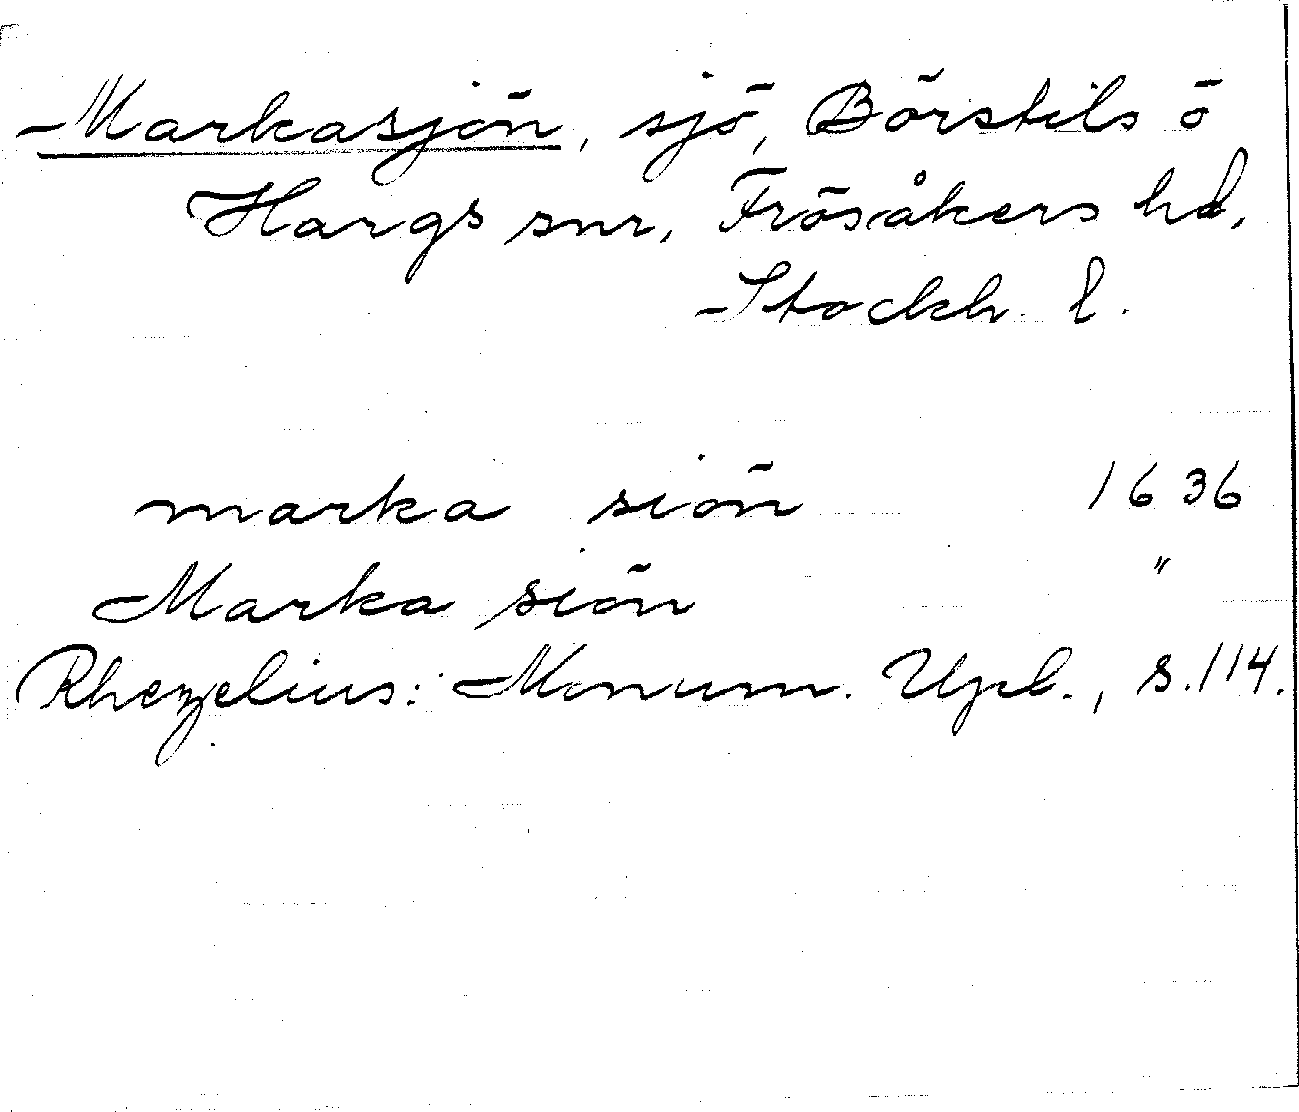 Markasjön, sjö, Börstils o
Hargs snr, Frösåkers hd,
Stockh. l.
marka siön 1636
Marka siön "
Rhezelius: Monum. Upl., s. 114.